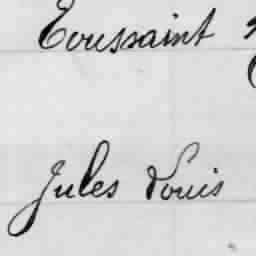 Toussaint
Jules Louis